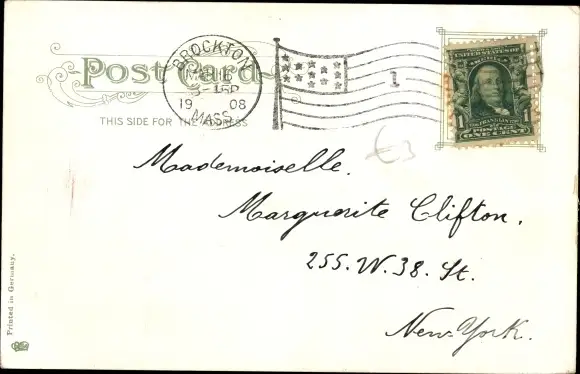 Post Card
BROCKTON
MASS.
19 08
1
UNITED STATES OF AMERICA
FRANKLIN
1 POSTAGE 1
ONE CENT
THIS SIDE FOR THE ADDRESS
€3
Mademoiselle.
Marguerite Clifton.
255. W. 38. St.
New York.
Printed in Germany.